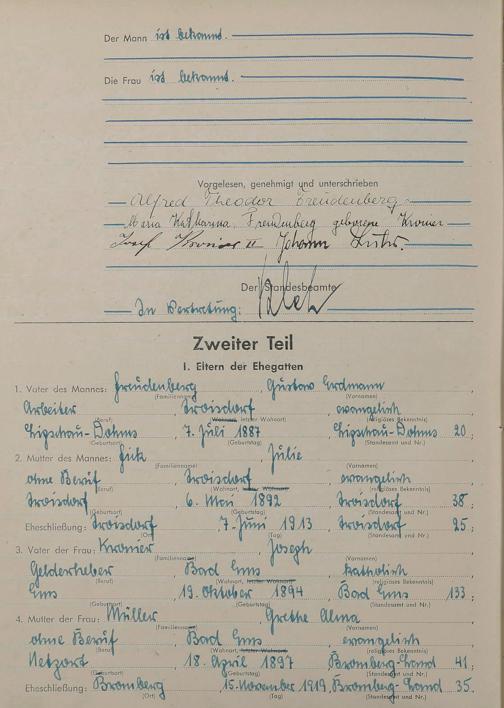 Der Mann ist bekannt.
Die Frau ist bekannt.
Vorgelesen, genehmigt und unterschrieben
Alfred Theodor Freudenberg
Maria Katharina Freudenberg geborene Kronier
Josef Kronier II Johann
Der Standesbeamte
In Vertretung:
Zweiter Teil
I. Eltern der Ehegatten
1. Vater des Mannes: Freudenberg, Gustav Erdmann
(Familienname) (Vornamen)
Arbeiter, Troisdorf, evangelisch
(Beruf) (Wohnort, letzter Wohnort) (religiöses Bekenntnis)
7. Juli 1887, 20;
(Geburtsort) (Geburtstag) (Standesamt und Nr.)
2. Mutter des Mannes: Julie
(Familienname) (Vornamen)
ohne Beruf, Troisdorf, evangelisch
(Beruf) (Wohnort, letzter Wohnort) (religiöses Bekenntnis)
Troisdorf, 6. Mai 1892, Troisdorf 38;
(Geburtsort) (Geburtstag) (Standesamt und Nr.)
Eheschließung: Troisdorf, 7. Juni 1913, Troisdorf 25;
(Ort) (Tag) (Standesamt und Nr.)
3. Vater der Frau: Kronier, Joseph
(Familienname) (Vornamen)
Gelderheber, Bad Ems, katholisch
(Beruf) (Wohnort, letzter Wohnort) (religiöses Bekenntnis)
Ems, 19. Oktober 1894, Bad Ems 133;
(Geburtsort) (Geburtstag) (Standesamt und Nr.)
4. Mutter der Frau: Müller, Grethe Alma
(Familienname) (Vornamen)
ohne Beruf, Bad Ems, evangelisch
(Beruf) (Wohnort, letzter Wohnort) (religiöses Bekenntnis)
Netzort, 18. April 1897, Bromberg-Land 41;
(Geburtsort) (Geburtstag) (Standesamt und Nr.)
Eheschließung: Bromberg, 15. November 1919, Bromberg-Land 35.
(Ort) (Tag) (Standesamt und Nr.)